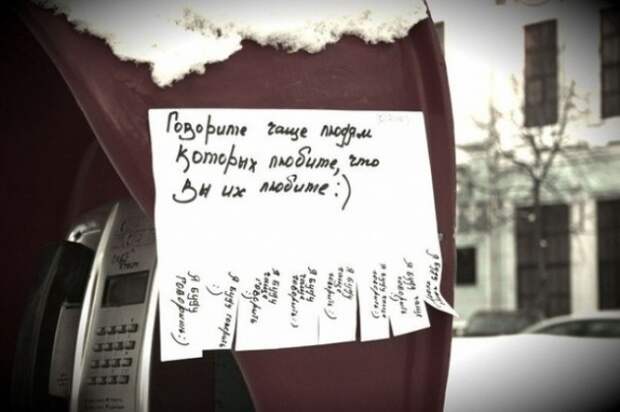 Говорите чаще людям
которых любите, что
Вы их любите :)
Я буду
говорить :)
Я буду говорить
:)
Я буду
чаще
говорить
Я буду
чаще
говорить :)
Я буду
чаще
говорить
Я буду чаще
говорить :)
Я буду чаще
говорить
Я буду чаще